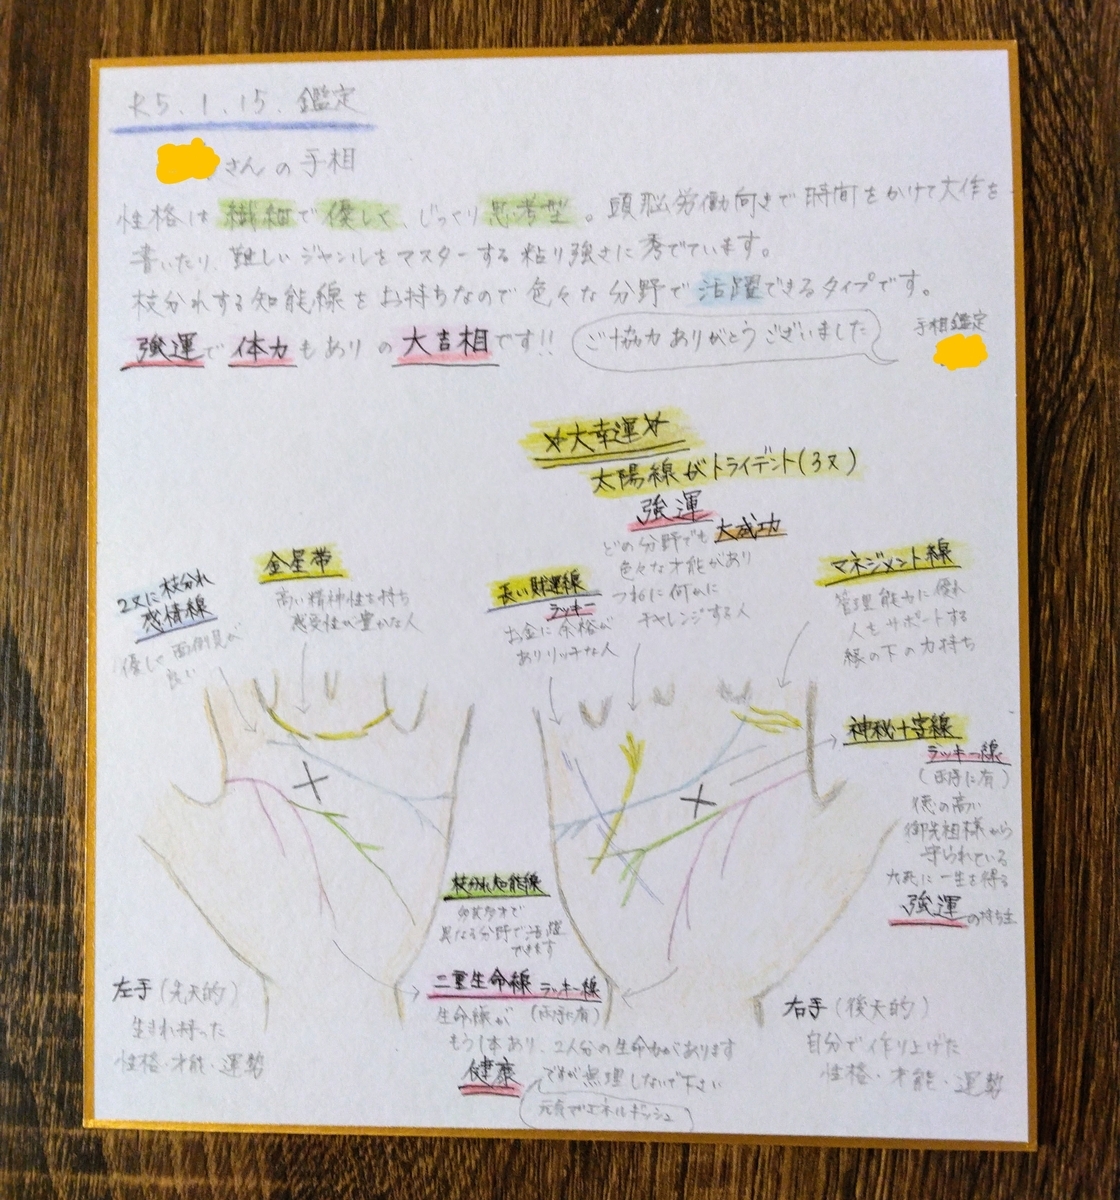 R5.1.15. 鑑定
さんの手相
性格は繊細で優しく、じっくり思考型。頭脳労働向きで時間をかけて大作を
書いたり、難しいジャンルをマスターする粘り強さに秀でています。
枝分れする知能線をお持ちなので色々な分野で活躍できるタイプです。
強運で体力もありの大吉相です!!
ご協力ありがとうございました
手相鑑定
☆大幸運☆
太陽線がトライデント(3又)
強運
どの分野でも大成功
色々な才能があり
つねに何かに
チャレンジする人
2又に枝分れ
感情線
優しく面倒見が
良い
金星帯
高い精神性を持ち
感受性が豊かな人
長い財運線
ラッキー
お金に余裕が
ありリッチな人
マネジメント線
管理能力に優れ
人をサポートする
縁の下の力持ち
神秘十字線
ラッキー線
(両手に有)
徳の高い
御先祖様から
守られている
九死に一生を得る
強運の持ち主
枝分れ知能線
多芸多才で
異なる分野で活躍
できます
二重生命線 ラッキー線
(両手に有)
生命線が
もう1本あり、2人分の生命力があります
健康
ですが無理しないで下さい
元気でエネルギッシュ
左手(先天的)
生まれ持った
性格・才能・運勢
右手(後天的)
自分で作り上げた
性格・才能・運勢